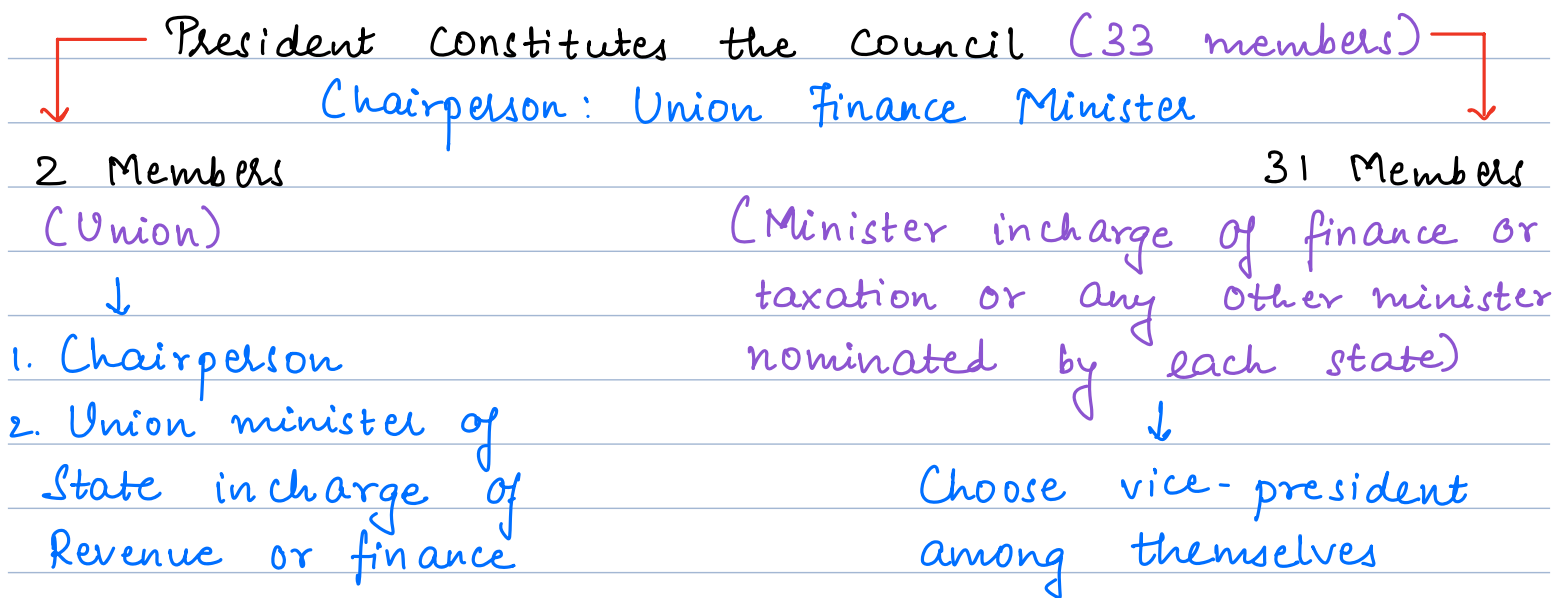 President constitutes the council (33 members)
Chairperson: Union Finance Minister
2 Members
(Union)
1. Chairperson
2. Union minister of
State incharge of
Revenue or finance
31 Members
(Minister incharge of finance or
taxation or any other minister
nominated by each state)
Choose vice-president
among themselves